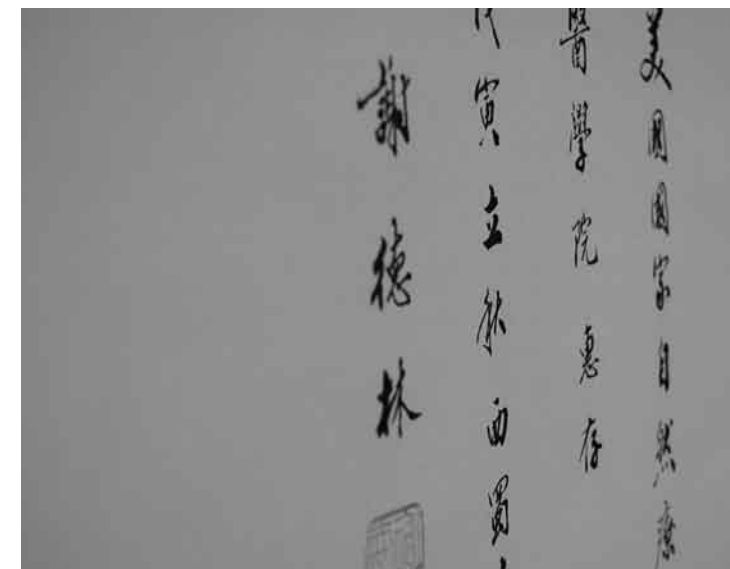 美國國家自然療
醫學院惠存
寅立秋西蜀
謝德林